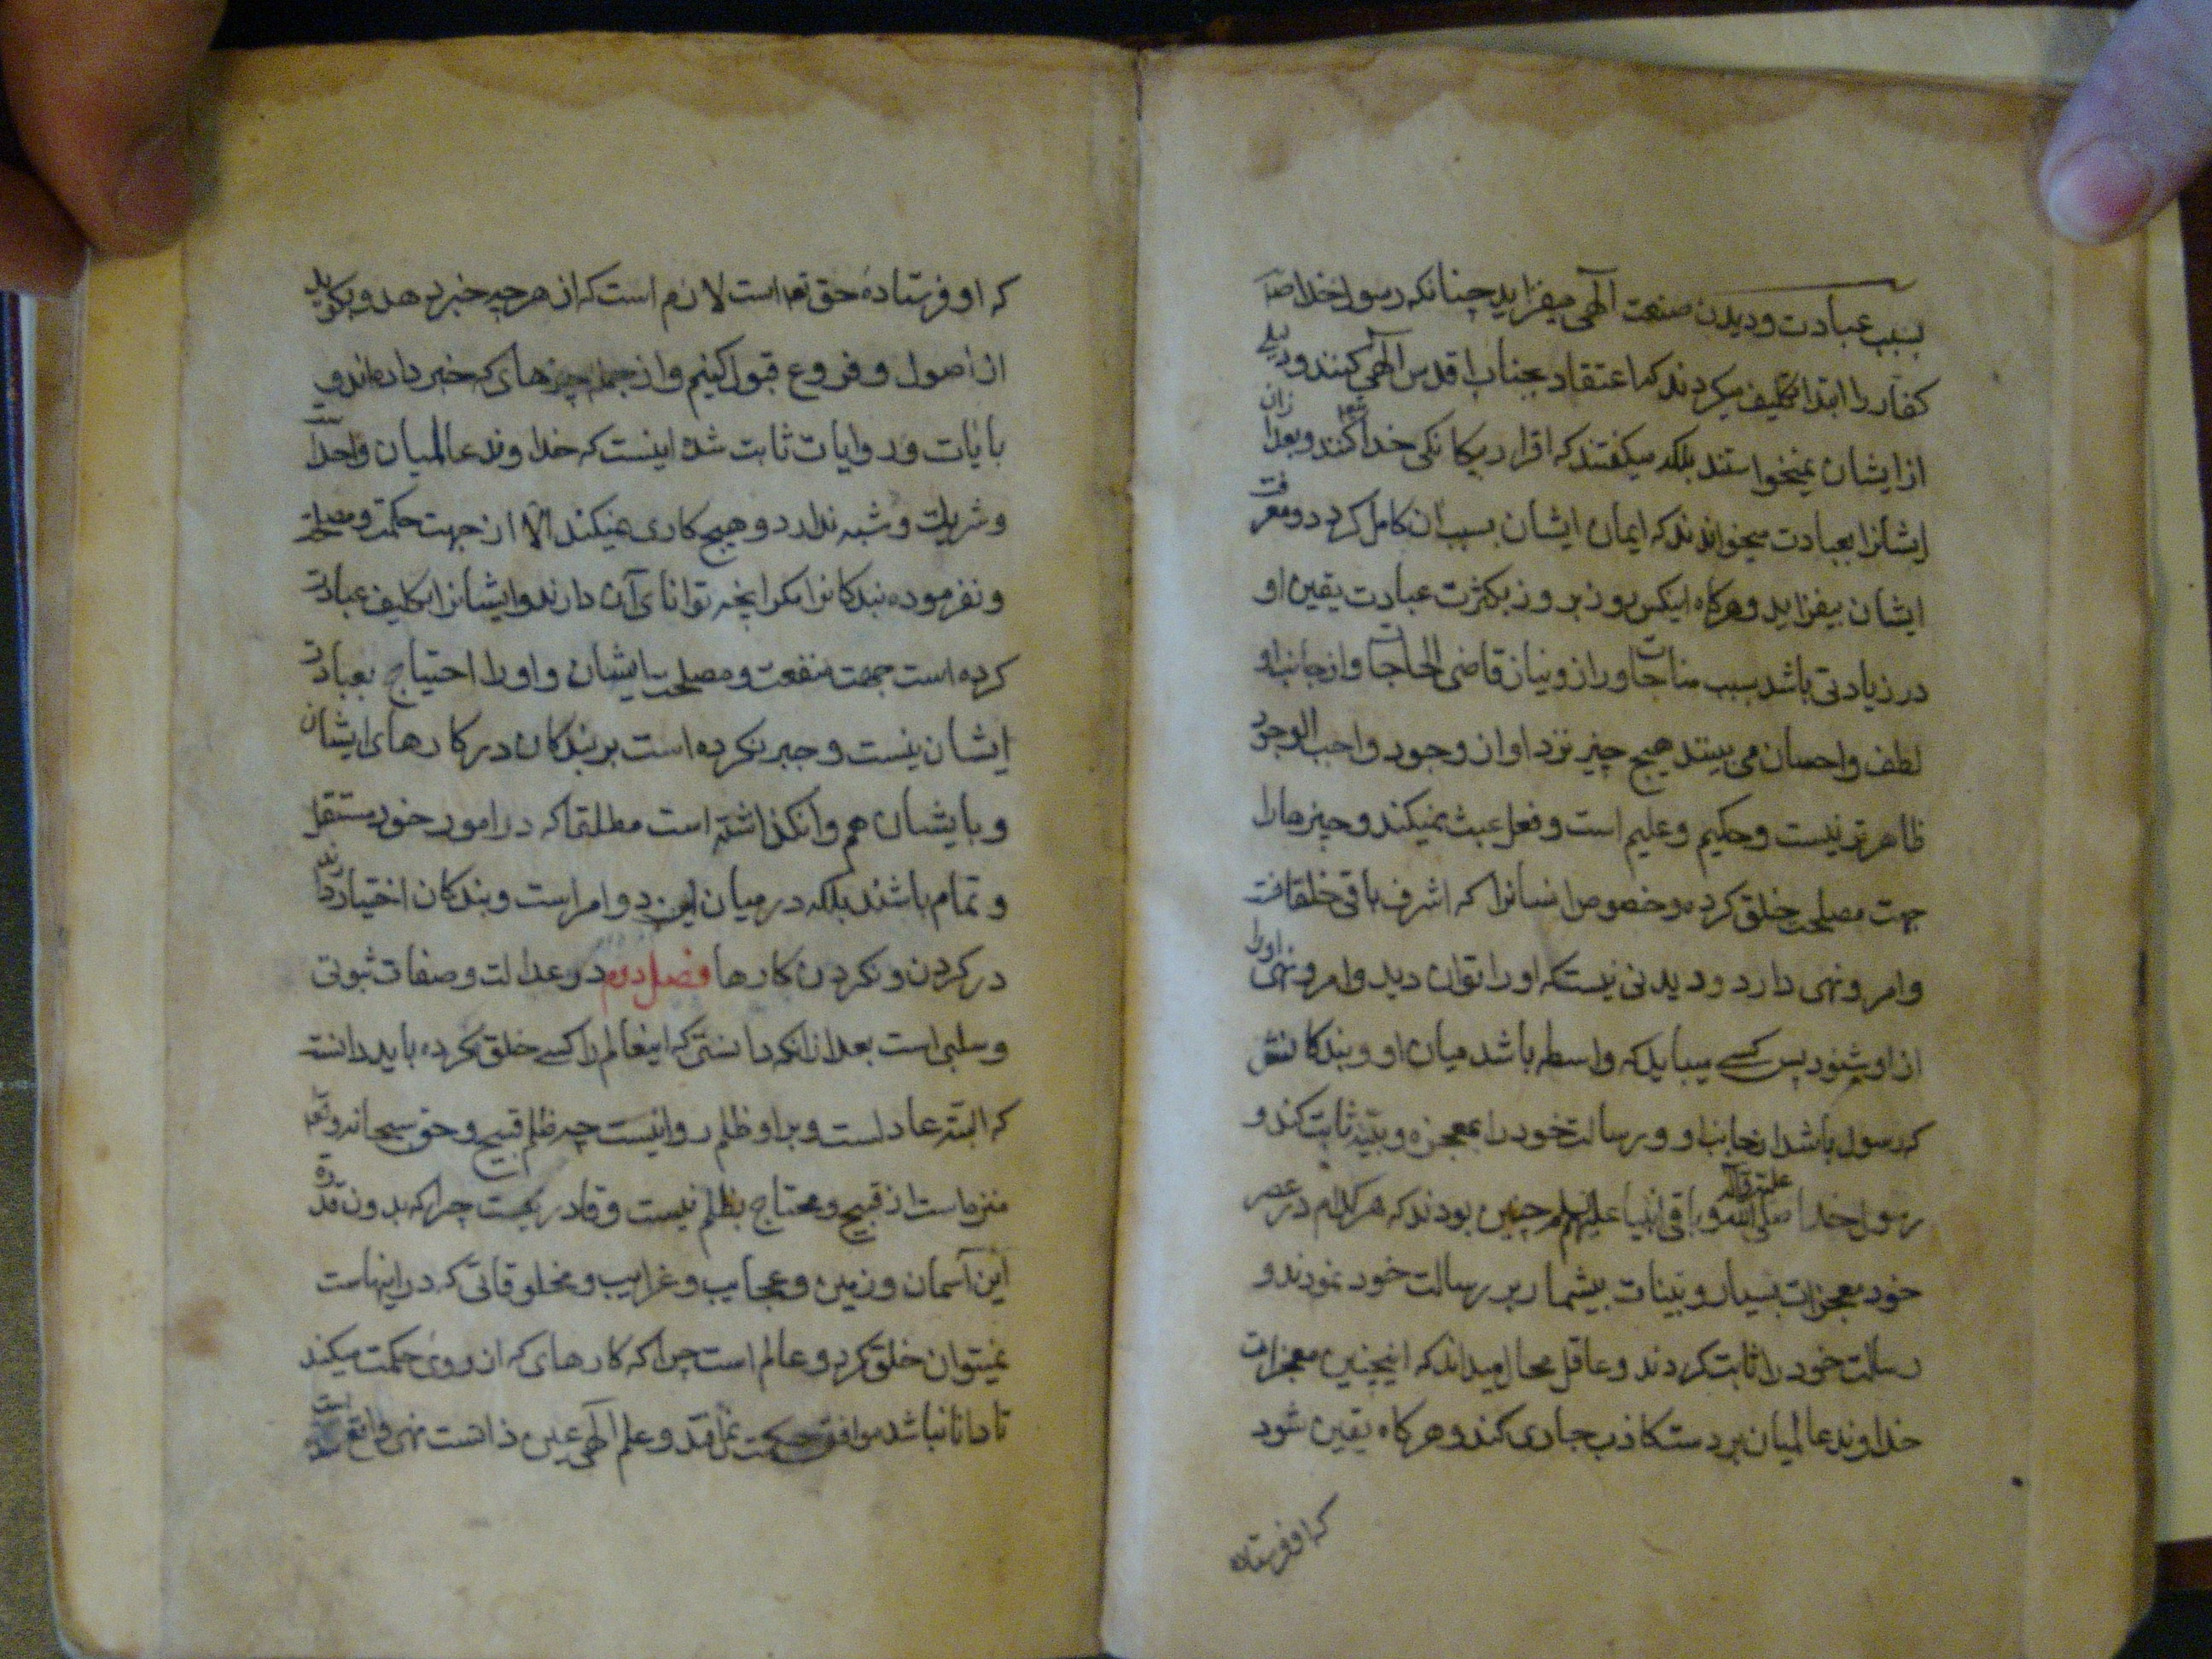 بسبب عبادت و دیدن صنعت آلهی میفزاید چنانکه رسول خدا صلم
کفار را ابتدا تکلیف میکردند که اعتقاد بجناب اقدس آلهی کنند و دلیلی
از ایشان نمیخواستند بلکه میکفتند که اقرار بیکانکی خدا کنند و بعد از ان
ایشانرا بعبادت میخواندند که ایمان ایشان بسبب ان کامل کردد و معرفت
ایشان بیفزاید و هرکاه اینکس روز بروز بکثرت عبادت یقین او
در زیادتی باشد بسبب مناجات و راز و نیاز قاضی الحاجات و از جانب او
لطف و احسان می بیند هیچ چیز نزد او از وجود واجب الوجود
ظاهرتر نیست و حکیم و علیم است و فعل عبث نمیکند و چیزها را
جهت مصلحت خلق کرده و خصوص انسانرا که اشرف باقی خلقانست
و امر و نهی دارد و دیدنی نیست که او را توان دید و امر و نهی او را
از او شنود پس کسی میباید که واسطه باشد میان او و بندکانش
که رسول باشد از جانب او و رسالت خود را بمعجزه و بیّنه ثابت کند و
رسول خدا صلی الله علیه و آله و باقی انبیا علیهم السلم چنین بودند که هر کدام در عصر
خود معجزات بسیار و بینات بیشمار بر رسالت خود نمودند و
رسالت خود را ثابت کردند و عاقل محال میداند که اینچنین معجزات
خداوند عالمیان بر دست کاذب جاری کند و هرکاه یقین شود
که او فرستاده
که او فرستاده حق تعا است لازم است که از هر چیز خبر دهد و بکوید
از اصول و فروع قبول کنیم و از جمله چیزهای که خبر داده اند و
بایات و روایات ثابت شده اینست که خداوند عالمیان واحد است
و شریک و شبه ندارد و هیچ کاری نمیکند الا از جهت حکمت و مصلحت
و نفرموده بندکانرا مکر انچه توانای آن دارند و ایشانرا تکلیف عبادت
کرده است جهت منفعت و مصلحت ایشان و او را احتیاج بعبادت
ایشان نیست و جبر نکرده است بر بندکان در کارهای ایشان
و بایشان هم وانکذاشته است مطلقا که در امور خود مستقل
و تمام باشند بلکه در میان این دو امر است و بندکان اختیار دارند
در کردن و نکردن کارها فصل دوم در عدالت و صفات ثبوتی
و سلبی است بعد از انکه دانستی که اینعالم را کسی خلق کرده باید دانست
که البته عادلست و بر او ظلم روا نیست چه ظلم قبیح و حق سبحانه و تعا
منزه است از قبیح و محتاج بظلم نیست و قادریست چرا که بدون قدرة
این آسمان و زمین و عجایب و غرایب و مخلوقاتی که در اینهاست
نمیتوان خلق کرد و عالم است چرا که کارهای که از روی حکمت میکند
تا دانا نباشد موافق حکمت نمی افتد و علم آلهی عین ذاتست نهی واقع است